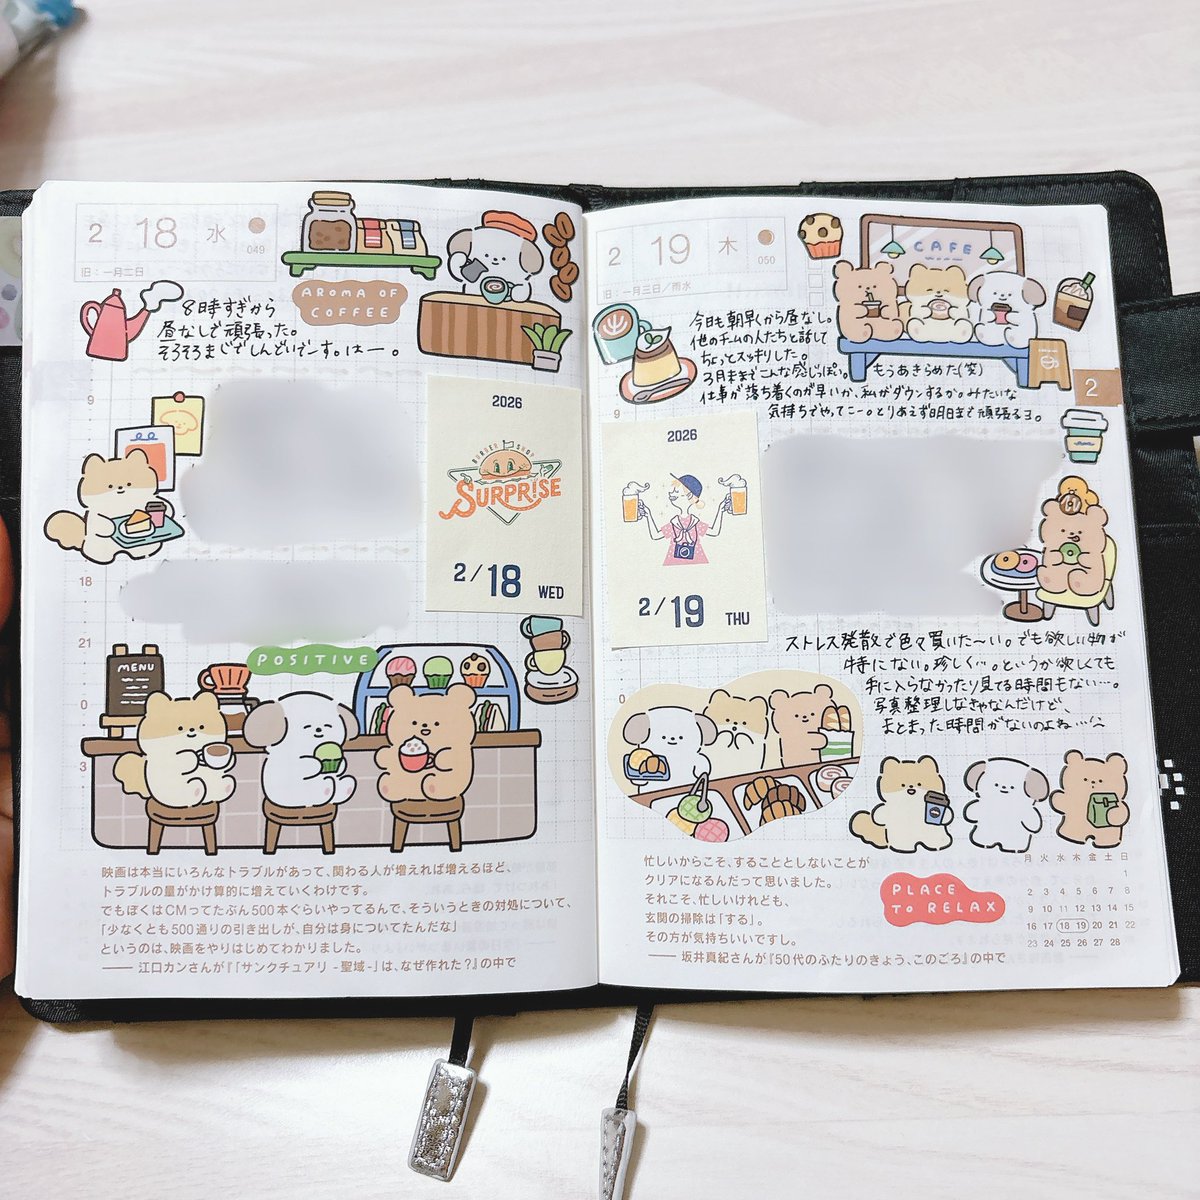 2
18
水
049
旧:一月二日
AROMA OF
COFFEE
8時すぎから
昼なしで頑張った。
そろそろまじでしんどいでーす。はー。
9
2026
BURGER SHOP
SURPRISE
2/18 WED
18
21
POSITIVE
MENU
0
3
映画は本当にいろんなトラブルがあって、関わる人が増えれば増えるほど、
トラブルの量がかけ算的に増えていくわけです。
でもぼくはCMってたぶん500本ぐらいやってるんで、そういうときの対処について、
「少なくとも500通りの引き出しが、自分は身についてたんだな」
というのは、映画をやりはじめてわかりました。
―― 江口カンさんが『「サンクチュアリ -聖域-」は、なぜ作れた?』の中で
2
19
木
050
旧:一月三日/雨水
CAFE
今日も朝早くから昼なし。
他のチームの人たちと話して
ちょっとスッキリした。
3月末までこんな感じっぽい。もうあきらめた(笑)
仕事が落ち着くのが早いか、私がダウンするか。みたいな
気持ちでやってこー。とりあえず明日まで頑張るヨ。
2
9
2026
2/19 THU
ストレス発散で色々買いた〜い。でも欲しい物が
特にない。珍しく…。というか欲しくても
手に入らなかったり見てる時間もない…。
写真整理しなきゃなんだけど、
まとまった時間がないのよね…〜
0
忙しいからこそ、することとしないことが
クリアになるんだって思いました。
それこそ、忙しいけれども、
玄関の掃除は「する」。
その方が気持ちいいですし。
―― 坂井真紀さんが『50代のふたりのきょう、このごろ』の中で
PLACE
TO RELAX
月 火 水 木 金 土 日
1
2 3 4 5 6 7 8
9 10 11 12 13 14 15
16 17 18 19 20 21 22
23 24 25 26 27 28